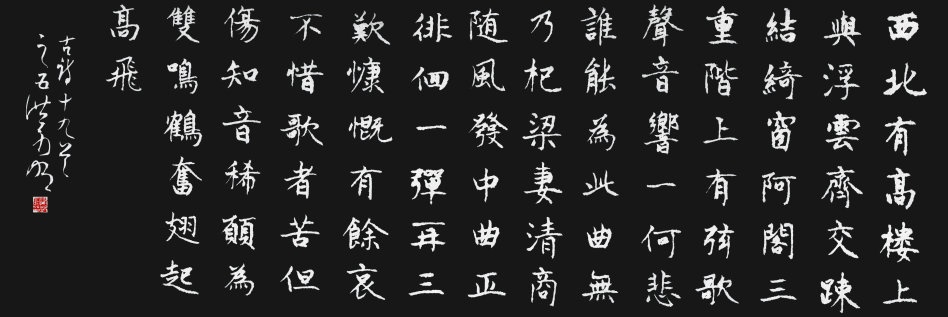 西北有髙楼上
與浮雲齊交踈
結綺窗阿閣三
重階上有弦歌
聲音響一何悲
誰能為此曲無
乃杞梁妻清商
随風發中曲正
徘佪一彈再三
歎慷慨有餘哀
不惜歌者苦但
傷知音稀願為
雙鳴鶴奮翅起
髙飛
古詩十九首
之五